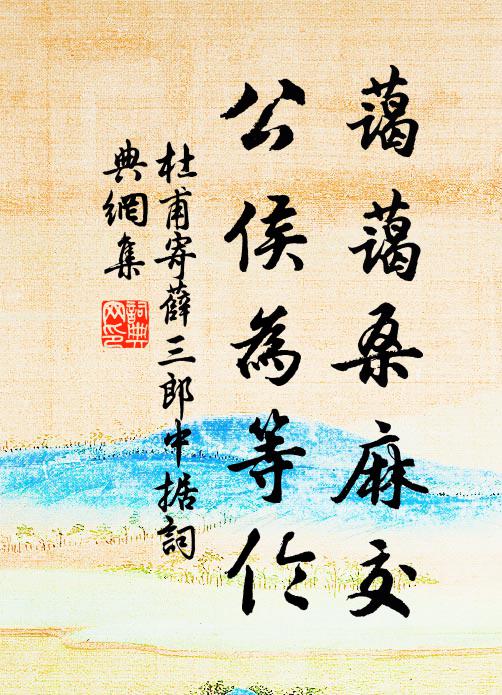 藹藹桑麻交
公侯為等倫
杜甫寄薛三郎中据詞
典網集
詞典
网印